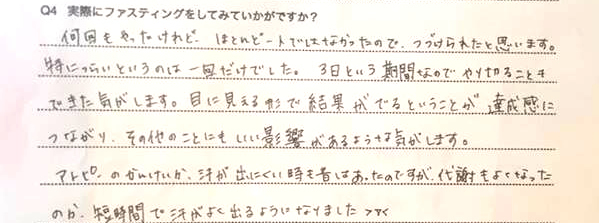 Q4 実際にファスティングをしてみていかがですか?
何回もやったけれど、ほとんどハードではなかったので、つづけられたと思います。
特につらいというのは一回だけでした。3日という期間なのでやり切ることも
できた気がします。目に見える形で結果がでるということが達成感に
つながり、その他のことにもいい影響があるような気がします。
アトピーのかんけいか、汗が出にくい時も昔はあったのですが、代謝もよくなった
のか、短時間で汗がよく出るようになりました